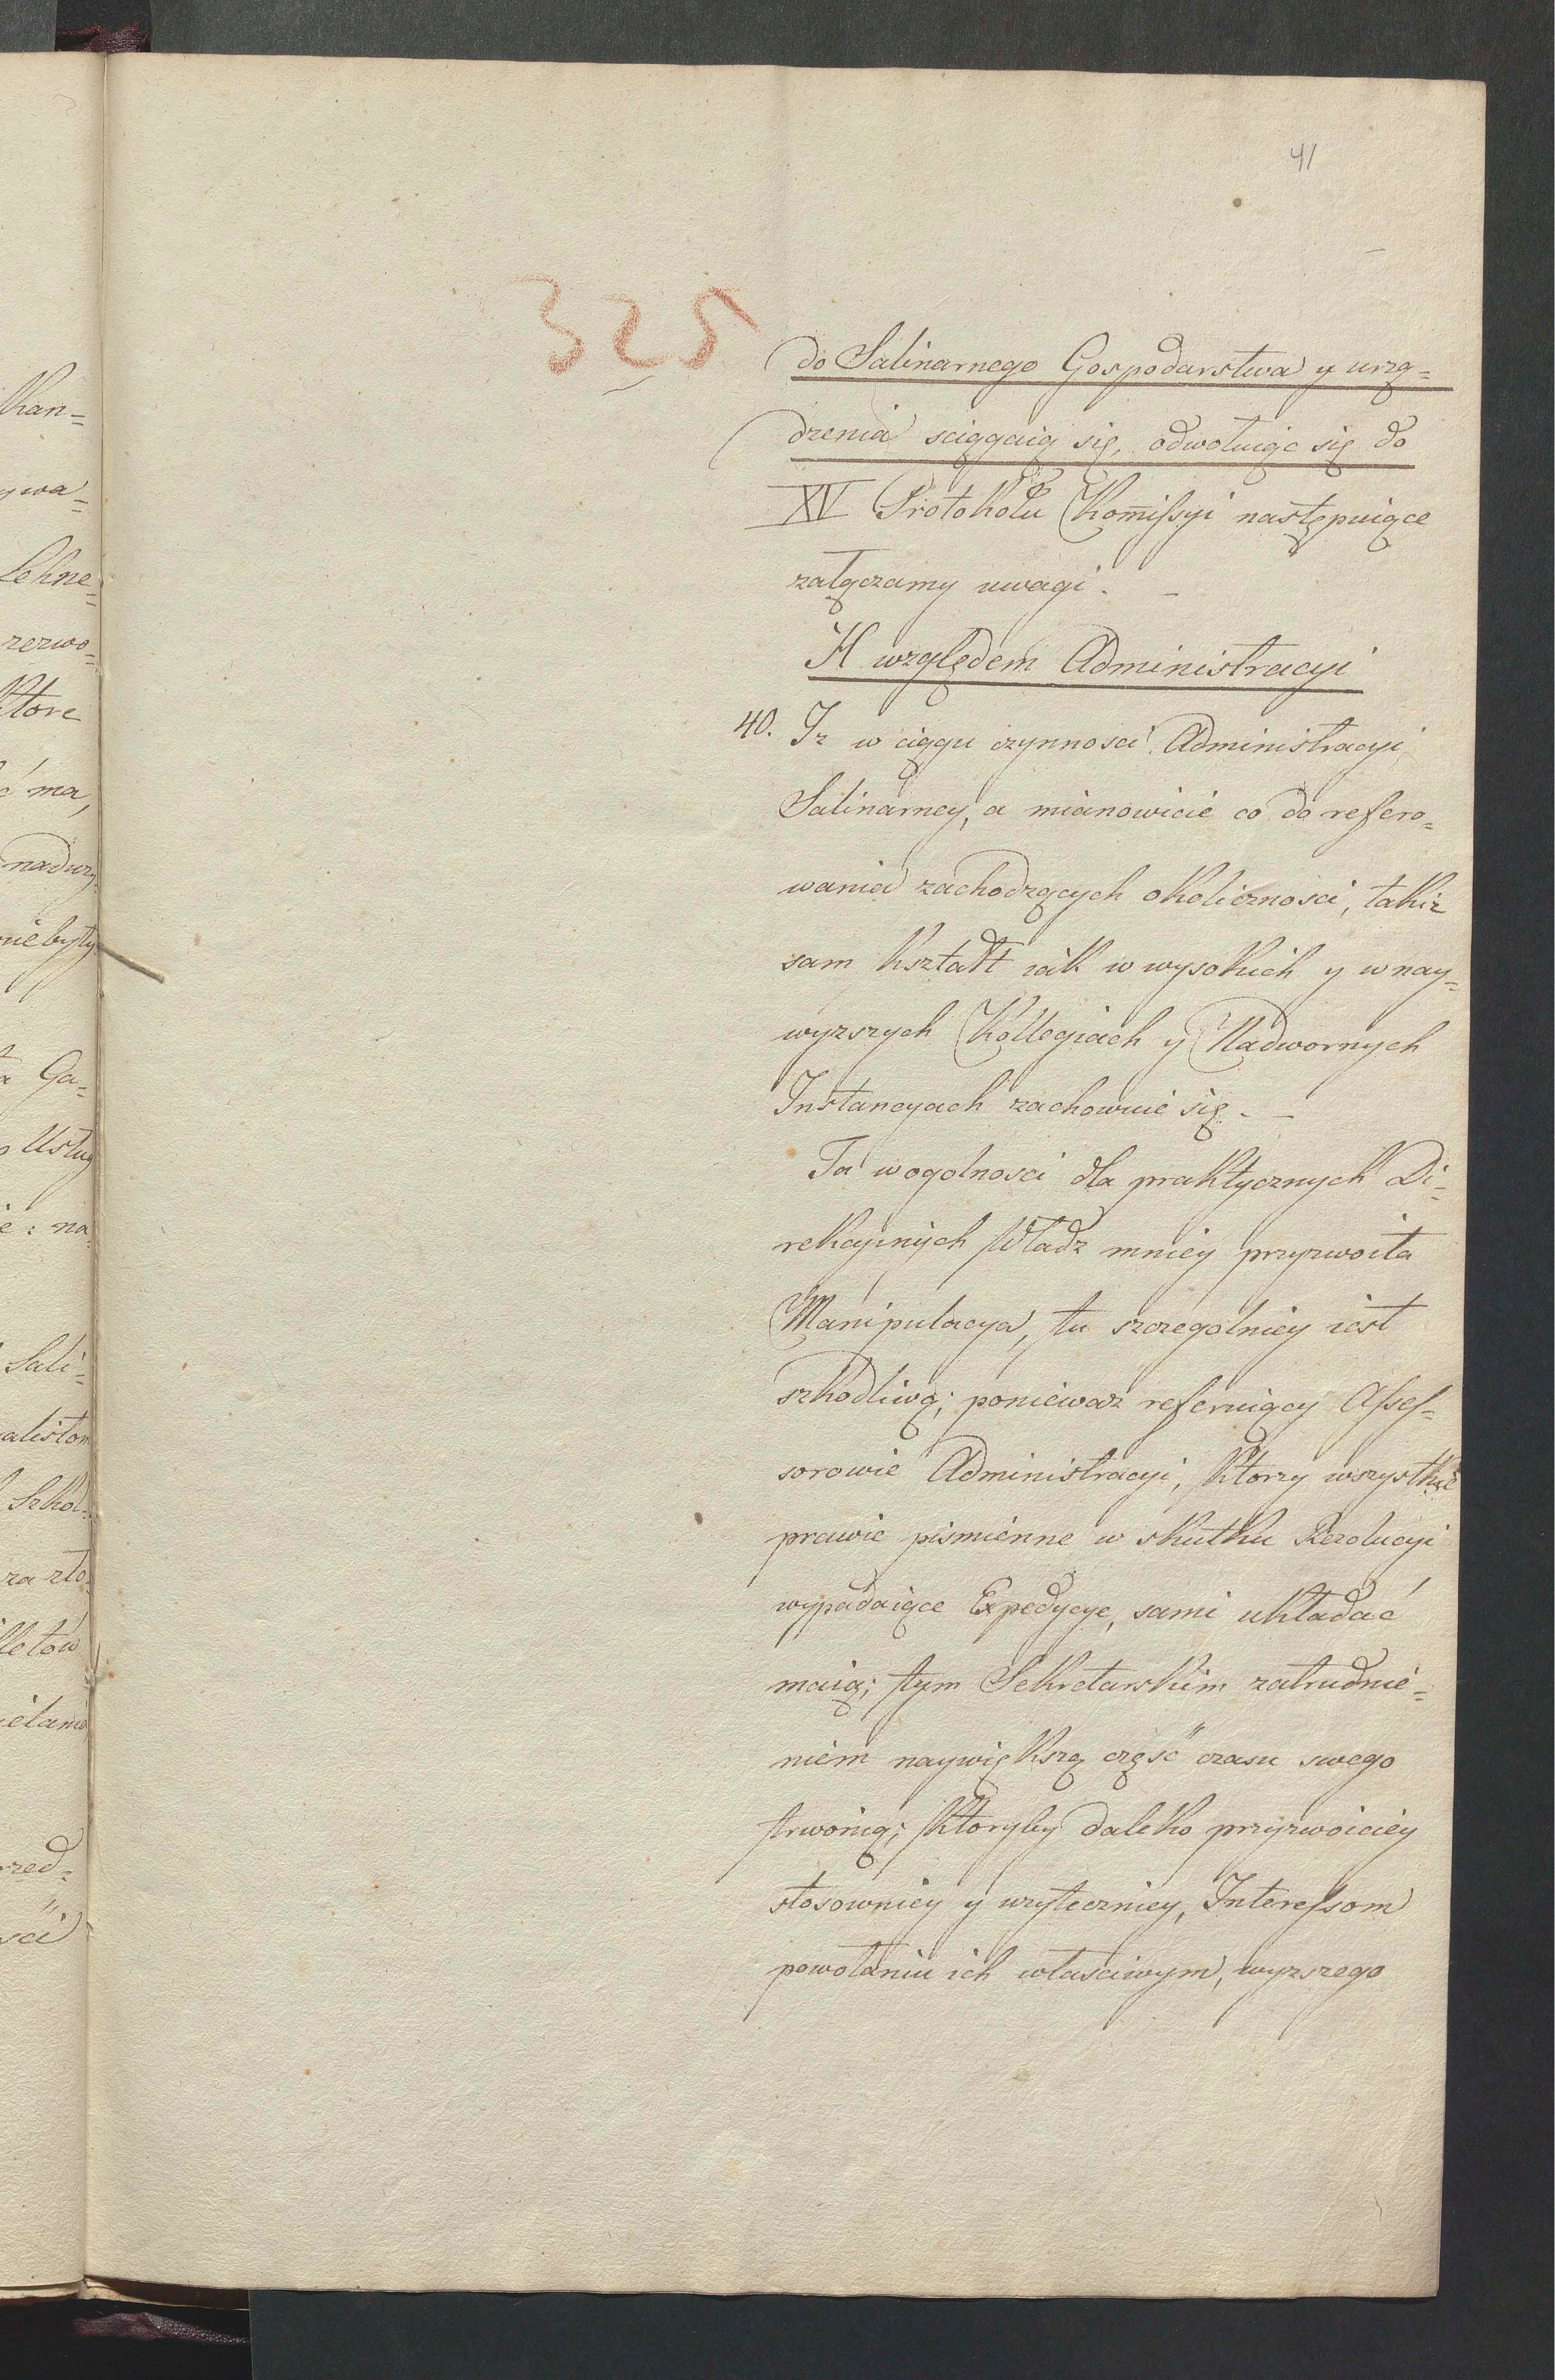 41
325
do Salinarnego Gospodarstwa y urzą=
dzenia sciągaią się, odwołuiąc się do
XV Protokołu Kom̅issyi następuiące
załączamy uwagi. _
H względem Administracyi
40. Iz w ciągu czynnosci Administracyi
Salinarney, a mianowicie co do refero=
wania zachodzących okolicznosci, takiz
sam kształt iak w wysokich y w nay=
wyzszych Kollegiach y Nadwornych
Instancyach zachowuie się. _
Ta wogolnosci dla praktycznych Di=
rekcyinych Władz mniey przyzwoita
Manipulacya, tu szczegolniey iest
szkodliwą; poniewaz referuiący Asses=
sorowie Administracyi, ktorzy wszystkie
prawie pismienne w skutku Rezolucyi
wypadaiące Expedycye, sami układać
maią; tym Sekretarskim zatrudnie=
niem naywiększą część czasu swego
trwonią; ktoryby daleko przyzwoiciey
stosowniey y uzyteczniey, Interessom
powołaniu ich własciwym, wyzszego
Kan=
ywa=
Lehne=
rezwo=
ktore
ć ma,
nadwy
niebyły
Ga=
Usług
na
Sali=
alistom
Szkod=
za zło
lletow
ielania
rzed=
sci